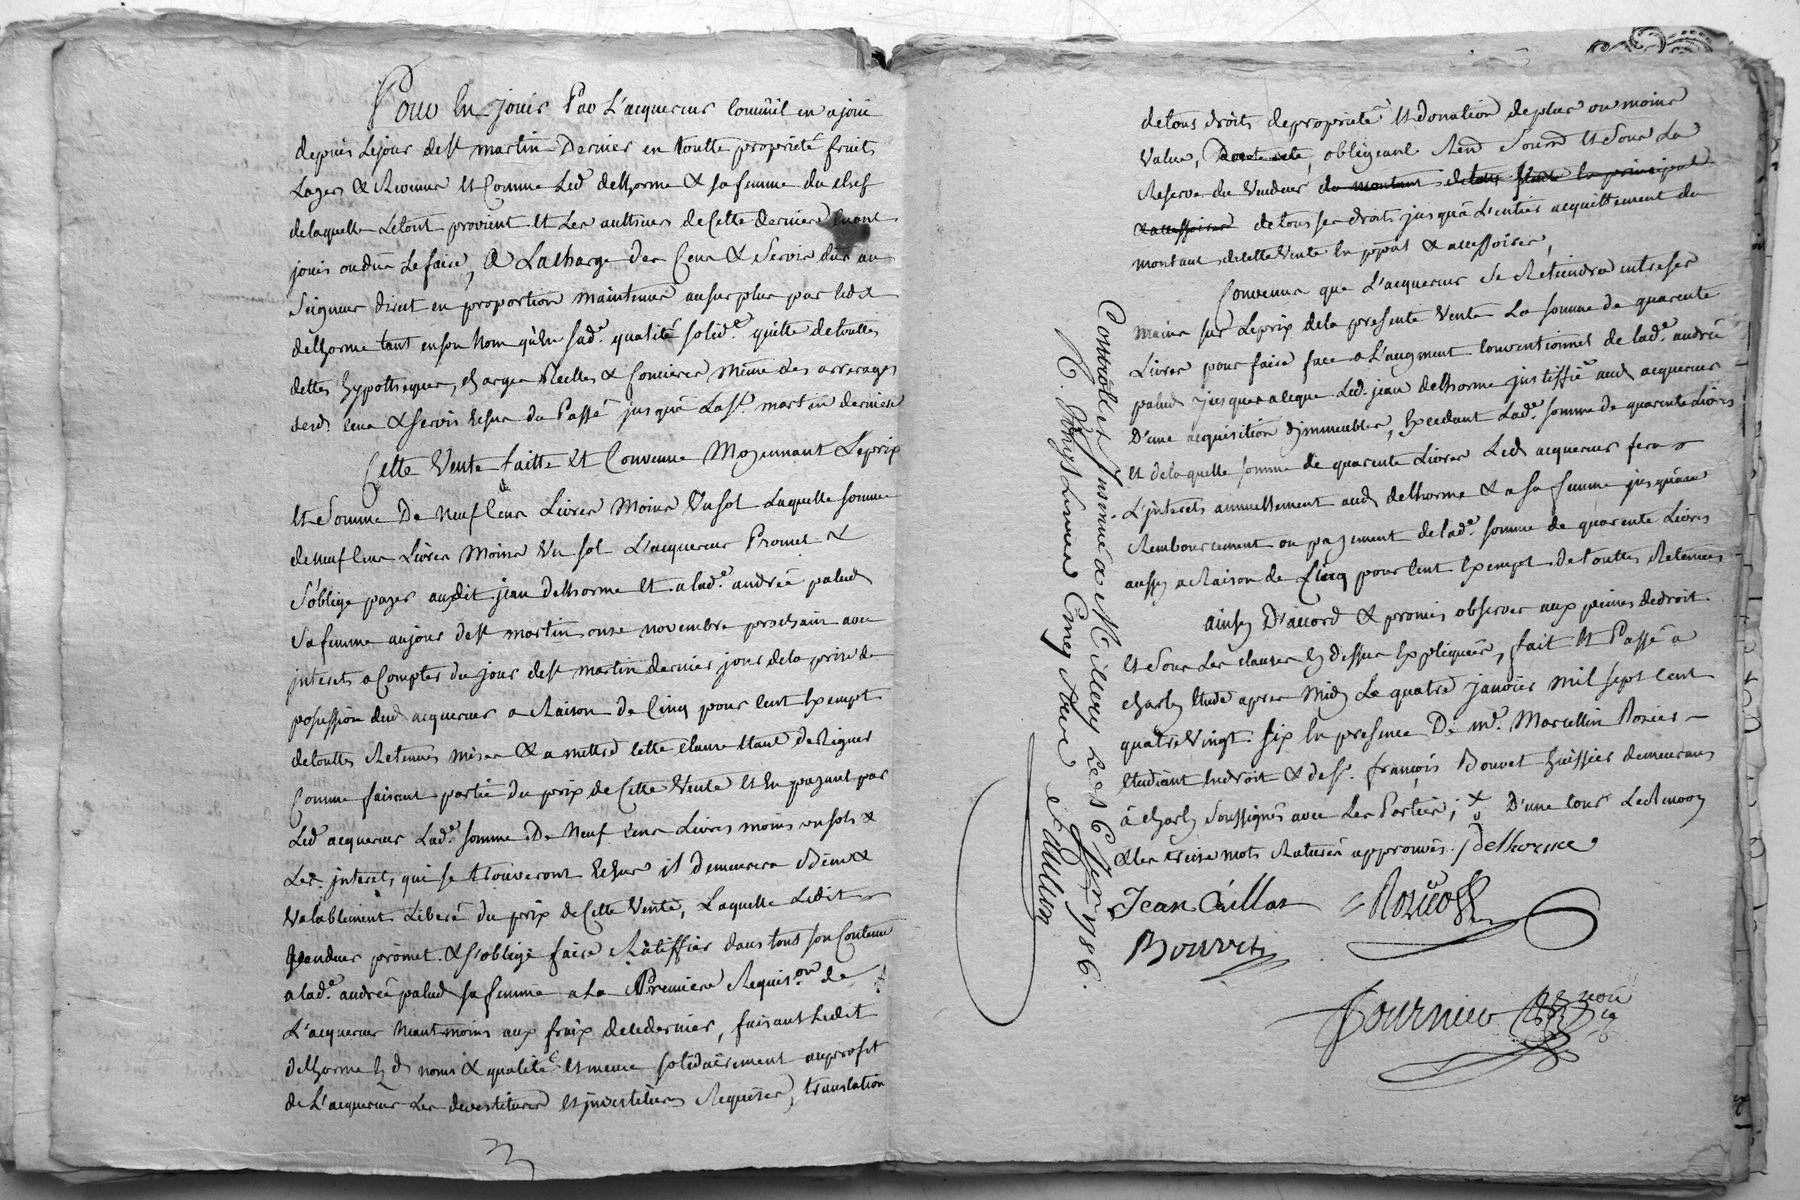 Pour En jouir Par L'acquereur Comm'il en a joui
depuis Lejour de st martin Dernier en toutte propriete fruits
et Comme Led. delhorme & sa femme du chef
delaquelle Letout provient Et Les autheurs de Cette derniere En ont
joui ou dû Le faire, A La charge des Cens & Servis dûs au
Seigneur direct en proportion maintenue au surplus par Ledit
delhorme tant en son Nom qu'En sad.e qualité solid.e quitte detouttes
dettes hypotheques, charges Réelles & foncieres Même des arrerages
desd. Cens & servis Echus du Passé jusqu'à La st. martin derniere
Cette Vente faitte Et Convenue Moyennant Le prix
Et Somme De Neuf Cens Livres Moins Un sol Laquelle somme
de neuf Cens Livres Moins Un sol L'acquereur Promet &
S'oblige payer audit jean Delhorme Et a lad.e andrée palud
Sa femme au jour de st martin onze novembre prochain avec
interets a Compter du jour de st martin dernier jour de la prise de
possession dud. acquereur a Raison de Cinq pour Cent Exempt
de touttes Retenues mises & a mettre cette clause Etant de Rigueur
Comme faisant partie du prix de Cette Vente Et En payant par
Led. acquereur Lad.e somme De Neuf Cens Livres moins un sols &
Les interets qui se trouveront Echus il demeurera Bien &
Valablement Liberé du prix de Cette Vente, Laquelle Ledit
Vendeur promet & s'oblige faire Ratiffier dans tout son Contenu
a lad.e andrée palud sa femme a La Premiere Requis.on de
L'acquereur Neantmoins aux fraix de ce dernier, faisant Ledit
delhorme Ez d. noms & qualités Et meme solidairement au profit
de L'acquereur Les devestitures Et investitures Requises, translation
de tous droits de propriété Et donation de plus ou moins
Value, obligeant Sous Et Sous La
Reserve du Vendeur du montant de La principal
& accessoires de tous ses droits jusqu'à L'entier acquittement du
montant de cette Vente En ppal & accessoires,
Convenu que L'acquereur Se Retiendra entre ses
mains sur Le prix de la presente Vente La somme de quarente
Livres pour faire face a L'augment Conventionnel de lad.e andrée
palud jusques a ce que Led. jean delhorme justiffie aud. acquereur
D'une acquisition d'immeubles, Excedant Lad.e somme de quarente Livres
Et de laquelle somme de quarente Livres Led. acquereur fera
L'interets annuellement aud. delhorme & a sa femme jusqu'au
Remboursement ou payement de lad.e somme de quarente Livres
aussy a Raison de Cinq pour Cent Exempt de touttes Retenues
Ainsy D'accord & promis observer aux peines de droit
Et Sous Les clauses Cy dessus Expliquées, fait Et Passé a
charly Etude apres Midy Le quatre janvier mil sept Cent
quatre Vingt six En presence De m.e Marcellin Rozier
Etudiant En droit & de sr. françois Bouvet huissier demeurans
à charly Soussignés avec Les Parties; x D'une tour Le Renvoy
& Les treize mots Raturés approuvés. / Delhorme
Jean Caillat Rozier
Bouvet
Fournier
Controllé et Insinué a Millery Le 1786.
R. Livres Cinq